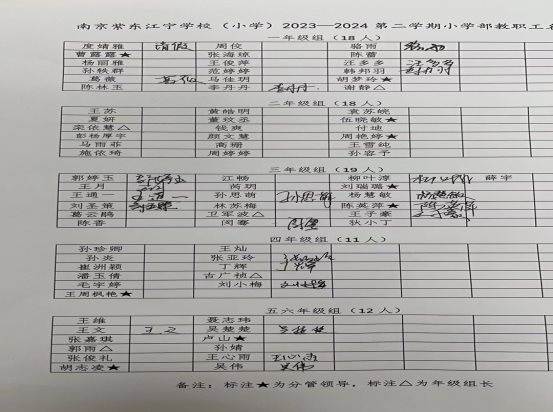 南京紫东江宇学校（小学）2023—2024第二学期小学部教职工
一年级组（18人）
度婧雅 请假 周佼 骆雨
曹露露★ 张海琼 陈蕾
杨丽雅 王俊萍 汪多多 汪多多
孙轶群 范婷婷 韩邦羽
葛薇 马佳玥 胡梦玲★
陈林玉 李丹丹 李丹丹 谢静△
二年级组（18人）
王苏 黄皓明 袁苏皖
夏妍 董玟丞 伍晓敏★
栾依慧△ 钱爽 付迪
彭杨厚宇 颜文慧 周艳婷★
马雨菲 高珊 王雪纯
施依琦 周婷婷 孙容予
三年级组（19人）
郭婷玉 江畅 柳叶淳 薛宇
王月 芮玥 刘瑞璐★
王通一 王通一 孙思萌 孙思萌 杨慧敏 杨慧敏
刘圣策 林苏梅 陈英萍★
葛云鹊 卫军波△ 王子豪 王子豪
陈香 闵蹇 狄小丁
四年级组（11人）
孙珍卿 王灿
孙炎 张亚玲
崔洲颖 丁辉 丁辉
潘玉倩 古广祯△
毛宇婷 刘小梅 刘小梅
王周枫艳★
五六年级组（12人）
王维 聂志玮
王文 王文 吴楚楚 吴楚楚
张嘉琪 卢山★
郭雨△ 孙婧
张俊礼 王心雨 王心雨
胡志凌★ 吴伟 吴伟
备注：标注★为分管领导，标注△为年级组长